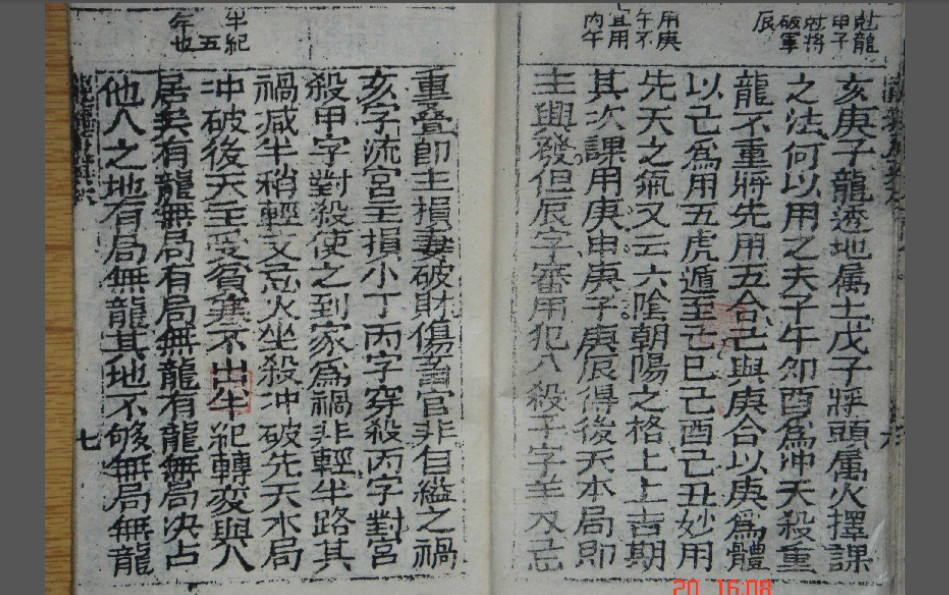 尅龍
甲子
尅將
破軍
辰
用庚
午不
宜用
內午
亥庚子龍透地属土戊子將頭属火擇課
之法何以用之夫子午卯酉為冲天殺重
龍不重將先用五合己與庚合以庚為體
以己為用五虎遁至己巳己酉己丑妙用
先天之氣又云六陰朝陽之格上上吉期
其次課用庚申庚子庚辰得後天水局即
主興發但辰字審用犯八殺子字羊刃忌
六
半紀
五
年也
重叠即主損妻破財傷畜官非自縊之禍
亥字流宮主損小丁丙字穿殺丙字對宮
殺甲字對殺使之到家為禍非輕半路其
禍减半稍輕又忌火坐殺冲破先天水局
冲破後天主受貧窮不出半紀轉変與人
居矣有龍無局有局無龍有龍無局决占
他人之地有局無龍其地不够無局無龍
七
20 16:08